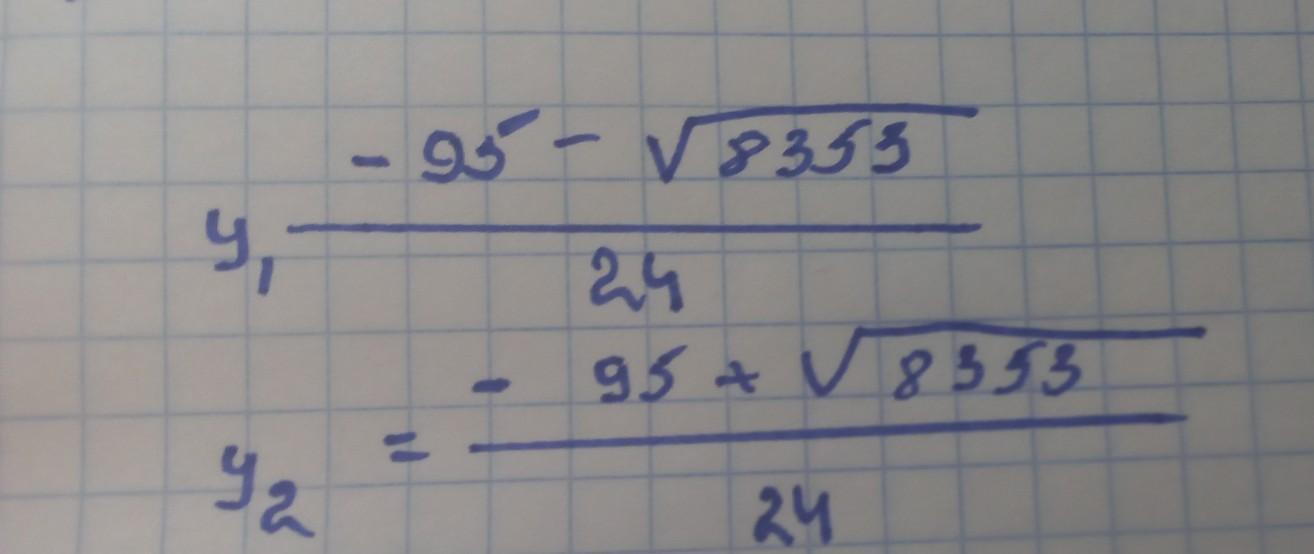 y₁ (-95 - √8353)/24
y₂ = (-95 + √8353)/24